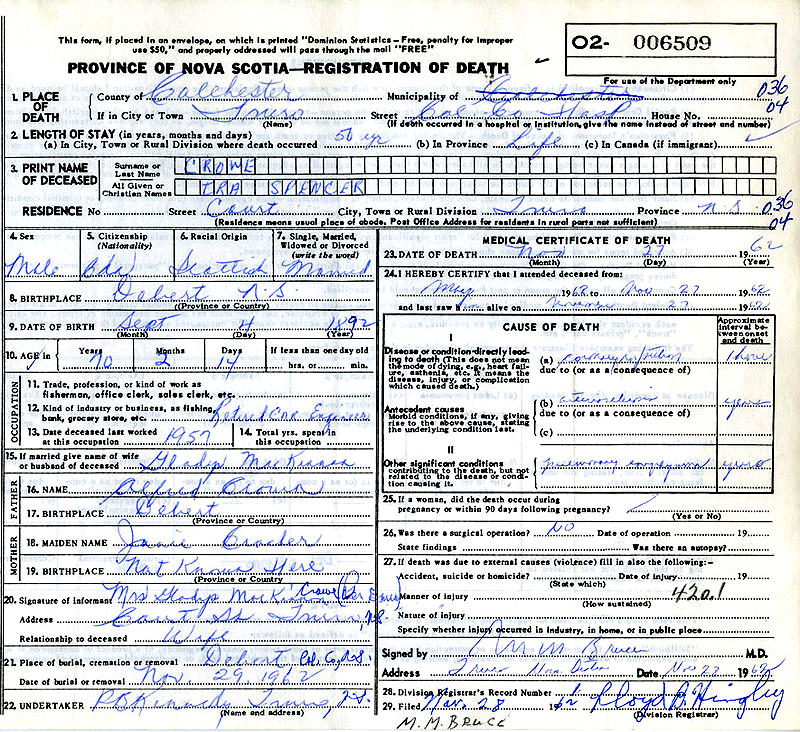 This form, if placed in an envelope, on which is printed "Dominion Statistics — Free, penalty for improper
use $50," and properly addressed will pass through the mail "FREE"
PROVINCE OF NOVA SCOTIA—REGISTRATION OF DEATH
O2- 006509
For use of the Department only
1. PLACE OF DEATH
County of Colchester Municipality of Colchester 036
If in City or Town Truro Street Col. Co. Hosp House No. 04
(Name) (If death occurred in a hospital or institution, give the name instead of street and number)
2. LENGTH OF STAY (in years, months and days)
(a) In City, Town or Rural Division where death occurred 50 yr (b) In Province Life (c) In Canada (if immigrant)
3. PRINT NAME OF DECEASED
Surname or Last Name CROWE
All Given or Christian Names IRA SPENCER
RESIDENCE No Street Court City, Town or Rural Division Truro Province N.S. 036
(Residence means usual place of abode. Post Office Address for residents in rural parts not sufficient) 04
4. Sex 5. Citizenship (Nationality) 6. Racial Origin 7. Single, Married, Widowed or Divorced (write the word)
Male Cda Scottish Married
8. BIRTHPLACE Debert N.S.
(Province or Country)
9. DATE OF BIRTH Sept 4 1892
(Month) (Day) (Year)
10. AGE in Years Months Days If less than one day old
70 2 hrs. or min.
OCCUPATION
11. Trade, profession, or kind of work as fisherman, office clerk, sales clerk, etc.
12. Kind of industry or business, as fishing, bank, grocery store, etc. Retired CNR Engineer
13. Date deceased last worked at this occupation 1957
14. Total yrs. spent in this occupation
15. If married give name of wife or husband of deceased Gladys MacKinnon
FATHER
16. NAME Alfred
17. BIRTHPLACE Debert
(Province or Country)
MOTHER
18. MAIDEN NAME Janie Crowder
19. BIRTHPLACE Not Known Here
(Province or Country)
20. Signature of informant Mrs Gladys MacKinnon Crowe
Address Court St Truro, N.S.
Relationship to deceased Wife
21. Place of burial, cremation or removal Debert Col. Co, N.S.
Date of burial or removal Nov. 29 1962
22. UNDERTAKER Truro N.S.
(Name and address)
MEDICAL CERTIFICATE OF DEATH
23. DATE OF DEATH Nov 27 1962
(Month) (Day) (Year)
24. I HEREBY CERTIFY that I attended deceased from:
May 1962 to Nov 27 1962
and last saw him alive on November 27 1962
CAUSE OF DEATH
Approximate interval between onset and death
I
Disease or condition directly leading to death (This does not mean the mode of dying, e.g., heart failure, asthenia, etc. It means the disease, injury, or complication which caused death.)
(a) coronary 1 hour
due to (or as a consequence of)
Antecedent causes
Morbid conditions, if any, giving rise to the above cause, stating the underlying condition last.
(b) years
due to (or as a consequence of)
(c)
II
Other significant conditions
contributing to the death, but not related to the disease or condition causing it.
pulmonary emphysema years
25. If a woman, did the death occur during
pregnancy or within 90 days following pregnancy?
(Yes or No)
26. Was there a surgical operation? NO Date of operation 19
State findings Was there an autopsy?
27. If death was due to external causes (violence) fill in also the following:-
Accident, suicide or homicide? Date of injury 19
(State which)
Manner of injury 420.1
(How sustained)
Nature of injury
Specify whether injury occurred in industry, in home, or in public place
Signed by M M Bruce M.D.
Address Truro Nova Scotia Date Nov 27 1962
28. Division Registrar's Record Number
29. Filed Nov. 28 1962 Lloyd B Hingley
(Division Registrar)
M. M. BRUCE